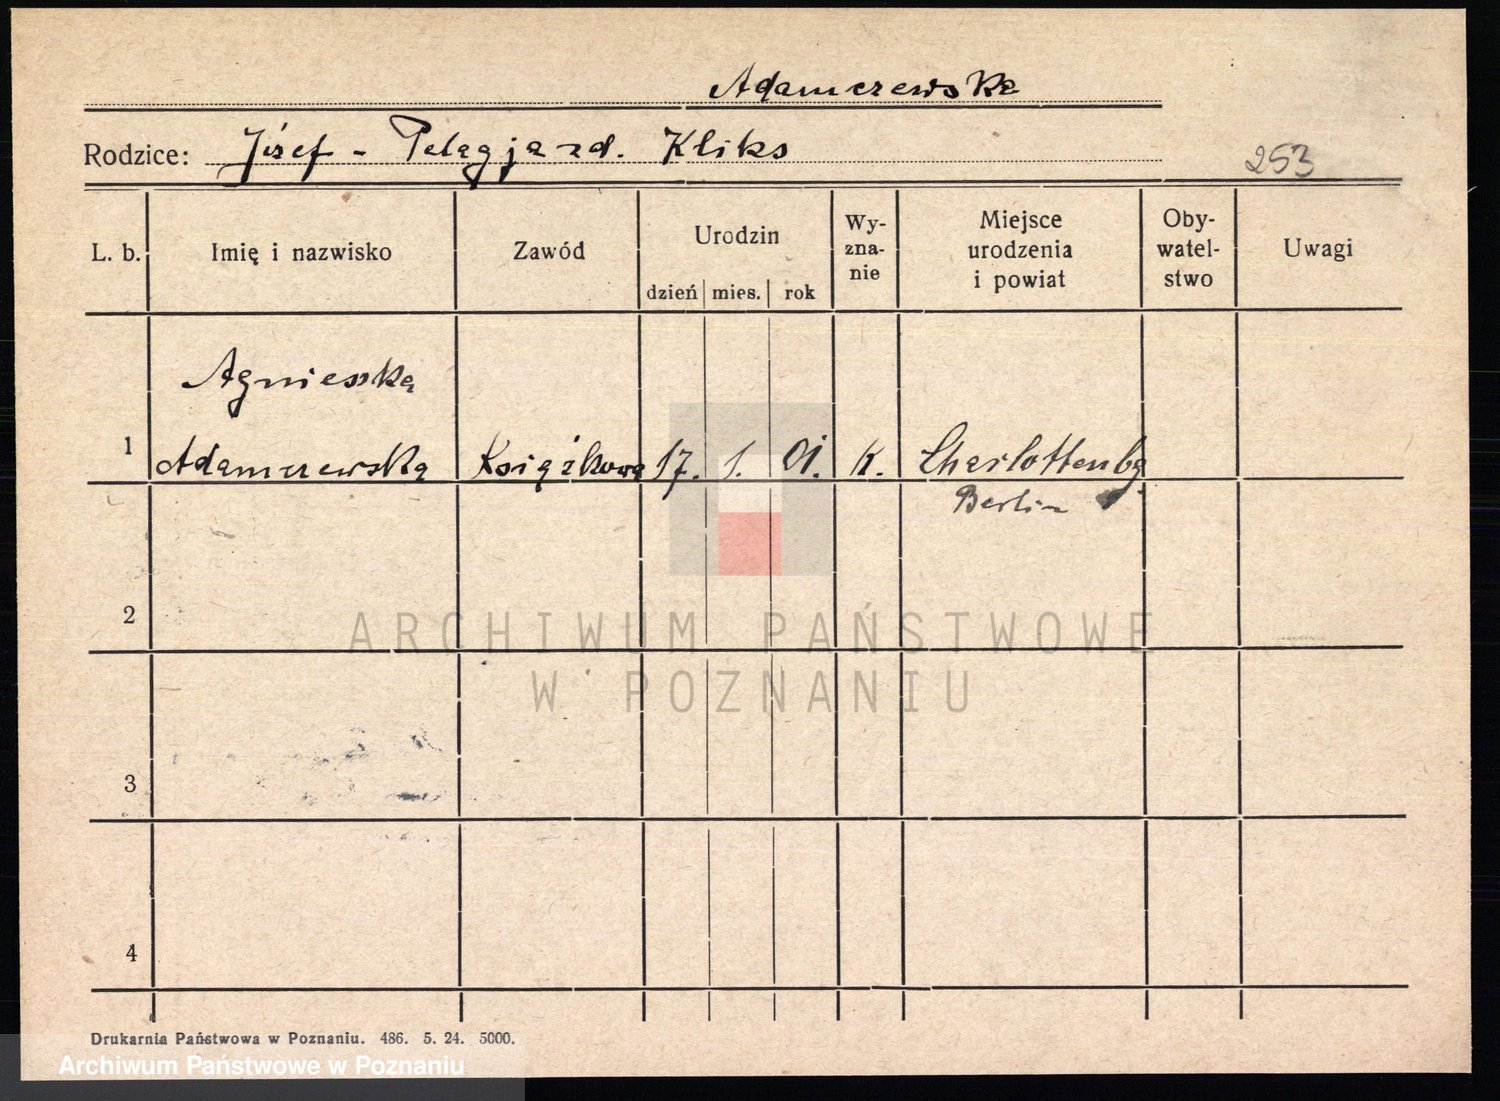 Adamczewska
Rodzice: Józef - Pelagja zd. Kliks
253
L. b. Imię i nazwisko Zawód Urodzin dzień mies. rok Wy-zna-nie Miejsce urodzenia i powiat Oby-watel-stwo Uwagi
Agnieszka
1 Adamczewska Książkowa 17. 1. 01. K. Charlottenbg
Berlin
2
ARCHIWUM PAŃSTWOWE
W POZNANIU
3
4
Drukarnia Państwowa w Poznaniu. 486. 5. 24. 5000.
Archiwum Państwowe w Poznaniu